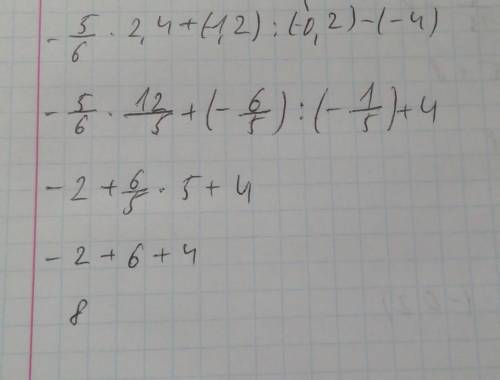 - 5/6 · 2,4 + (-1,2) : (-0,2) - (-4)
- 5/6 · 12/5 + (- 6/5) : (- 1/5) + 4
- 2 + 6/5 · 5 + 4
- 2 + 6 + 4
8